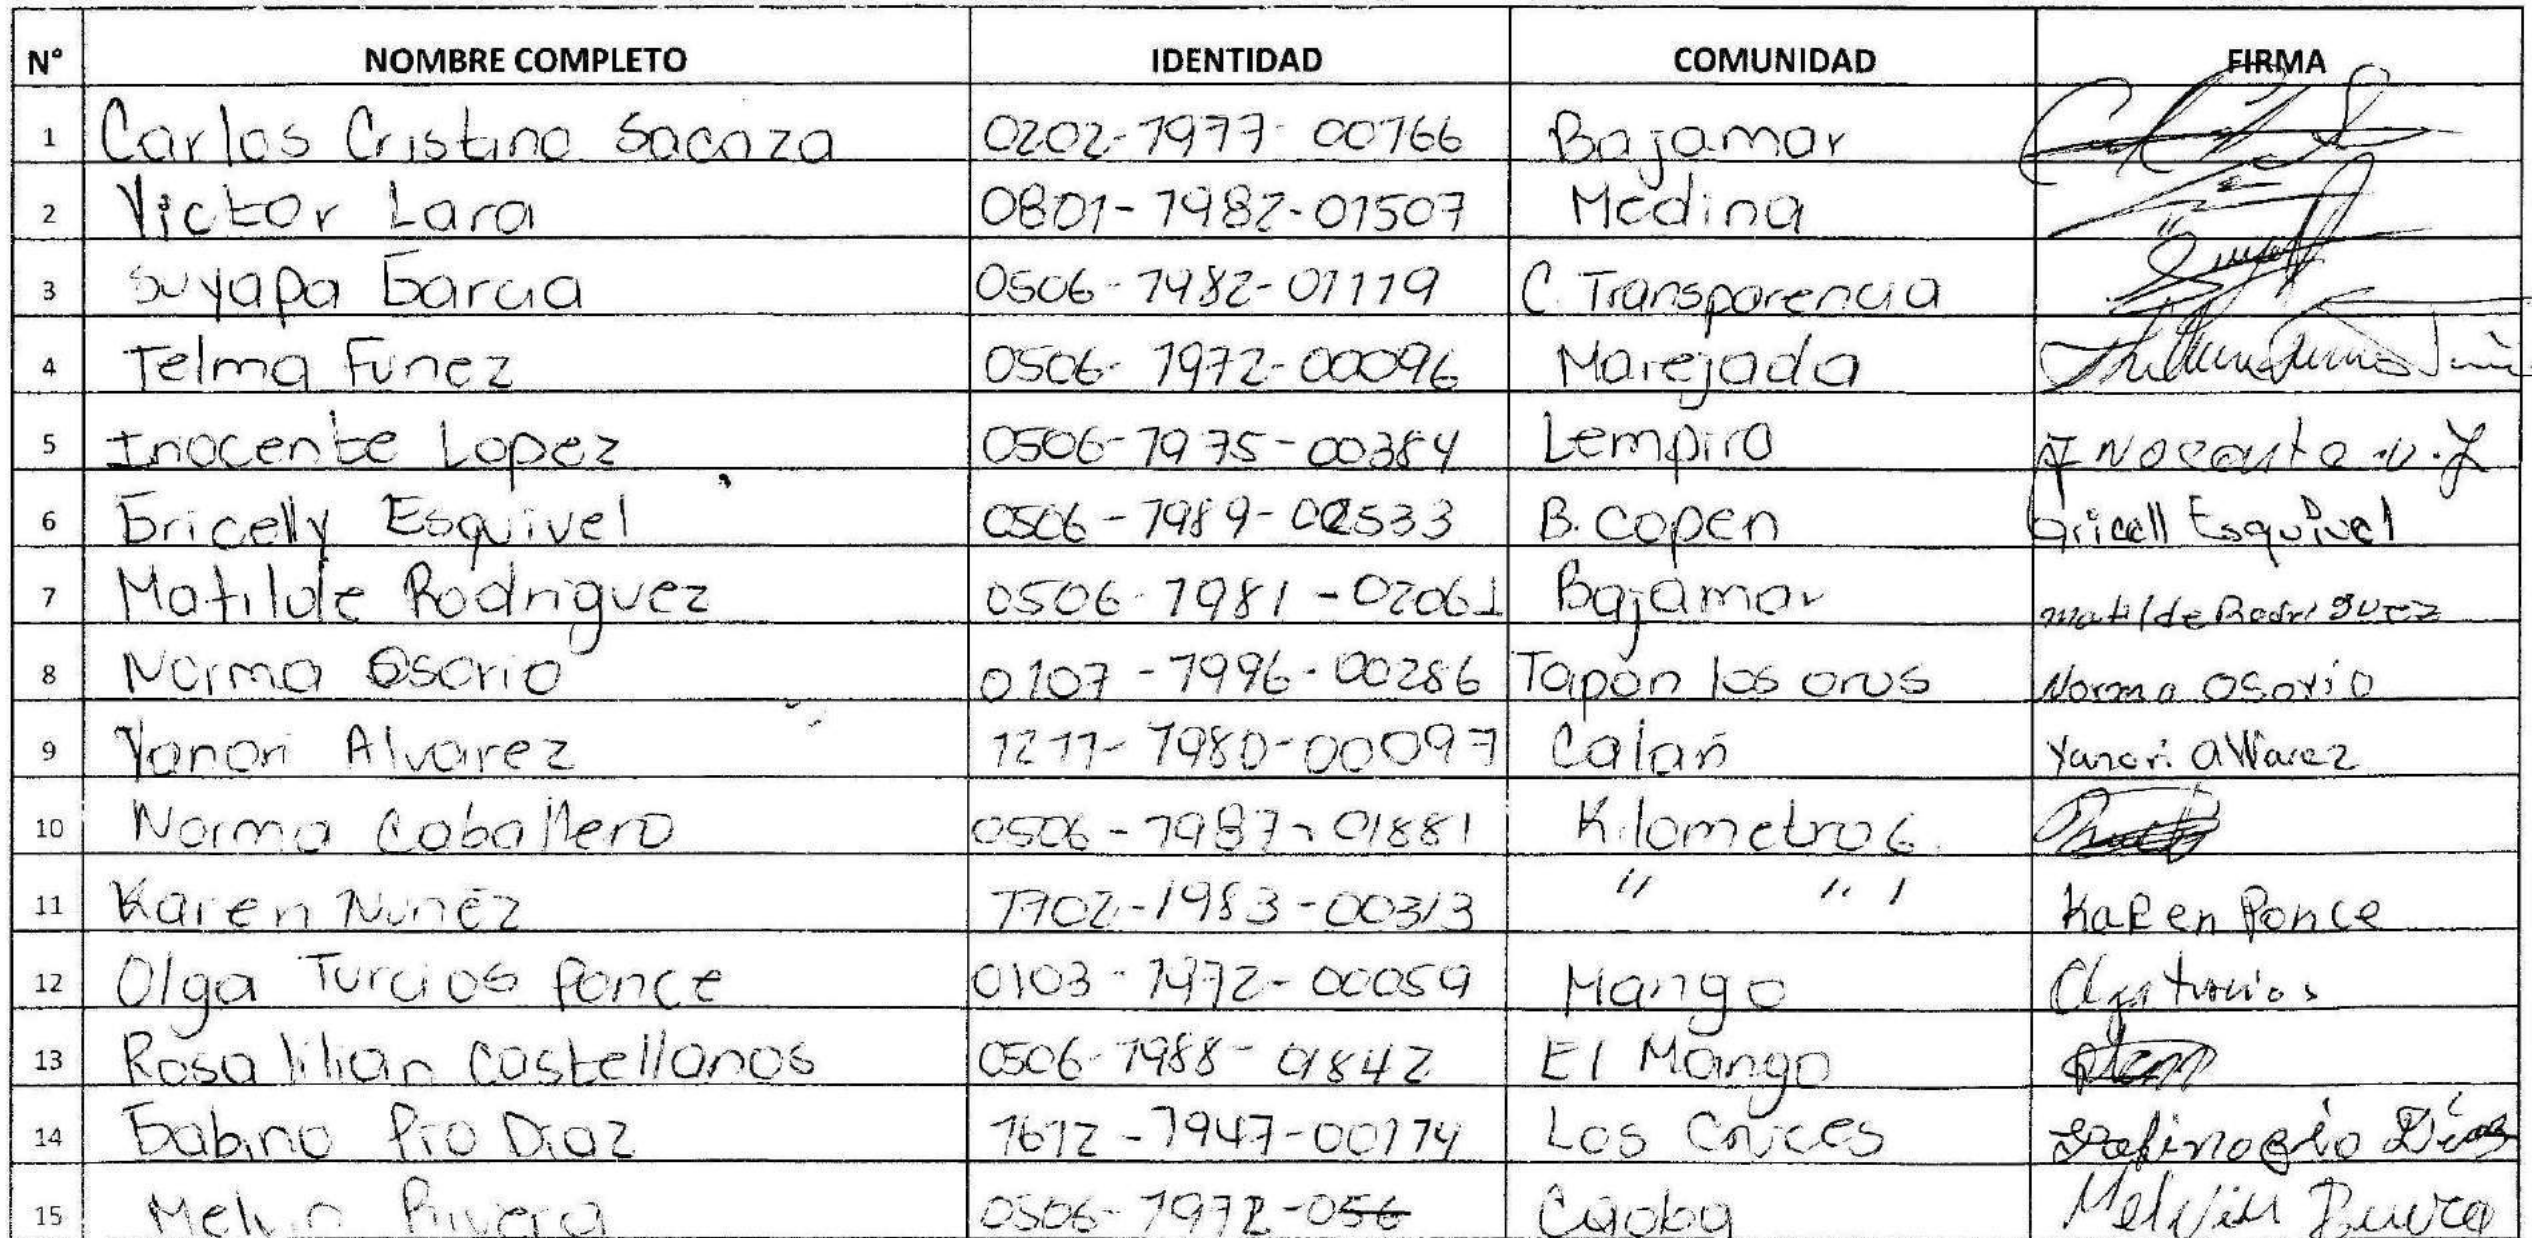 N° NOMBRE COMPLETO IDENTIDAD COMUNIDAD FIRMA
1 Carlos Cristino Sacaza 0202-1977-00166 Bajamar
2 Victor Lara 0801-1982-01507 Medina
3 Suyapa Garcia 0506-1982-01119 C. Transparencia
4 Telma Funez 0506-1972-00096 Marejada
5 Inocente Lopez 0506-1975-00384 Lempira
6 Gricelly Esquivel 0506-1989-02533 B. Copen Gricell Esquivel
7 Matilde Rodriguez 0506-1981-02061 Bajamar Matilde Rodriguez
8 Norma Osorio 0107-1996-00286 Tapon los Norma Osorio
9 Yanori Alvarez 1211-1980-00097 Calan Yanori Alvarez
10 Norma Caballero 0506-1987-01881 Kilometro 6
11 Karen Nunez 1702-1983-00313 " " Karen Ponce
12 Olga Turcios Ponce 0103-1972-00059 Mango Olga turcios
13 Rosa lilian Castellanos 0506-1988-01842 El Mango
14 Gabino Pio Diaz 1612-1947-00174 Los Cruces
15 Melvin Rivera 0506-1972- Caoba Melvin